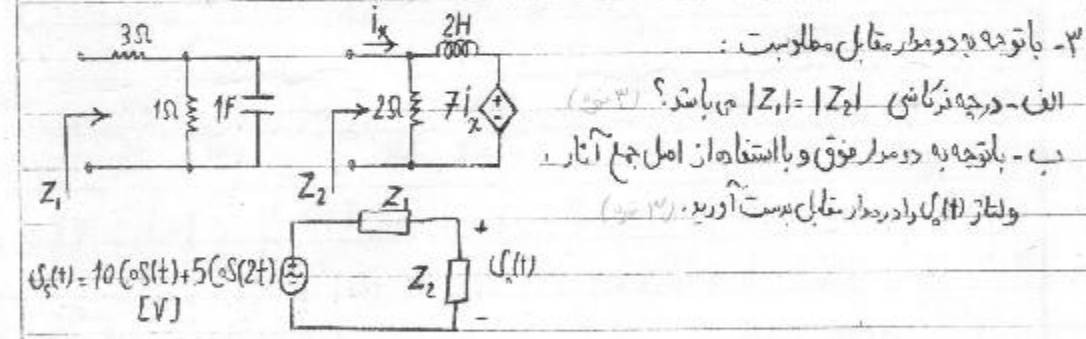 ۳- باتوجه به دو مدار مقابل مطلوبست :
الف - در چه فرکانسی |Z₁| = |Z₂| می باشد؟ (۳ نمره)
ب - باتوجه به دو مدار فوق و با استفاده از اصل جمع آثار ،
ولتاژ را در مدار مقابل بدست آورید. (۳ نمره)
3Ω
1Ω
1F
Z₁
iₓ
2H
2Ω
7iₓ
+
-
Z₂
Z₁
+
Z₂
-
= 10 Cos(t) + 5 Cos(2t)
[V]